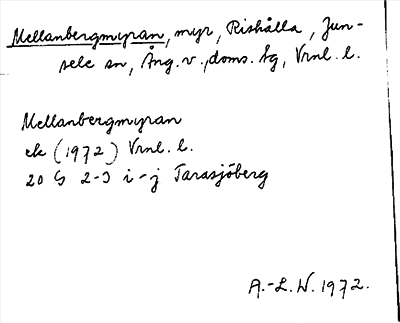 Mellanbergmyran, myr, Rishålla, Jun-
sele sn, Ång. v. doms. tg, Vrnl. l.
Mellanbergmyran
ek (1972) Vrnl. l.
20 G 2-3 i-j Tarasjöberg
A.-L. W. 1972.